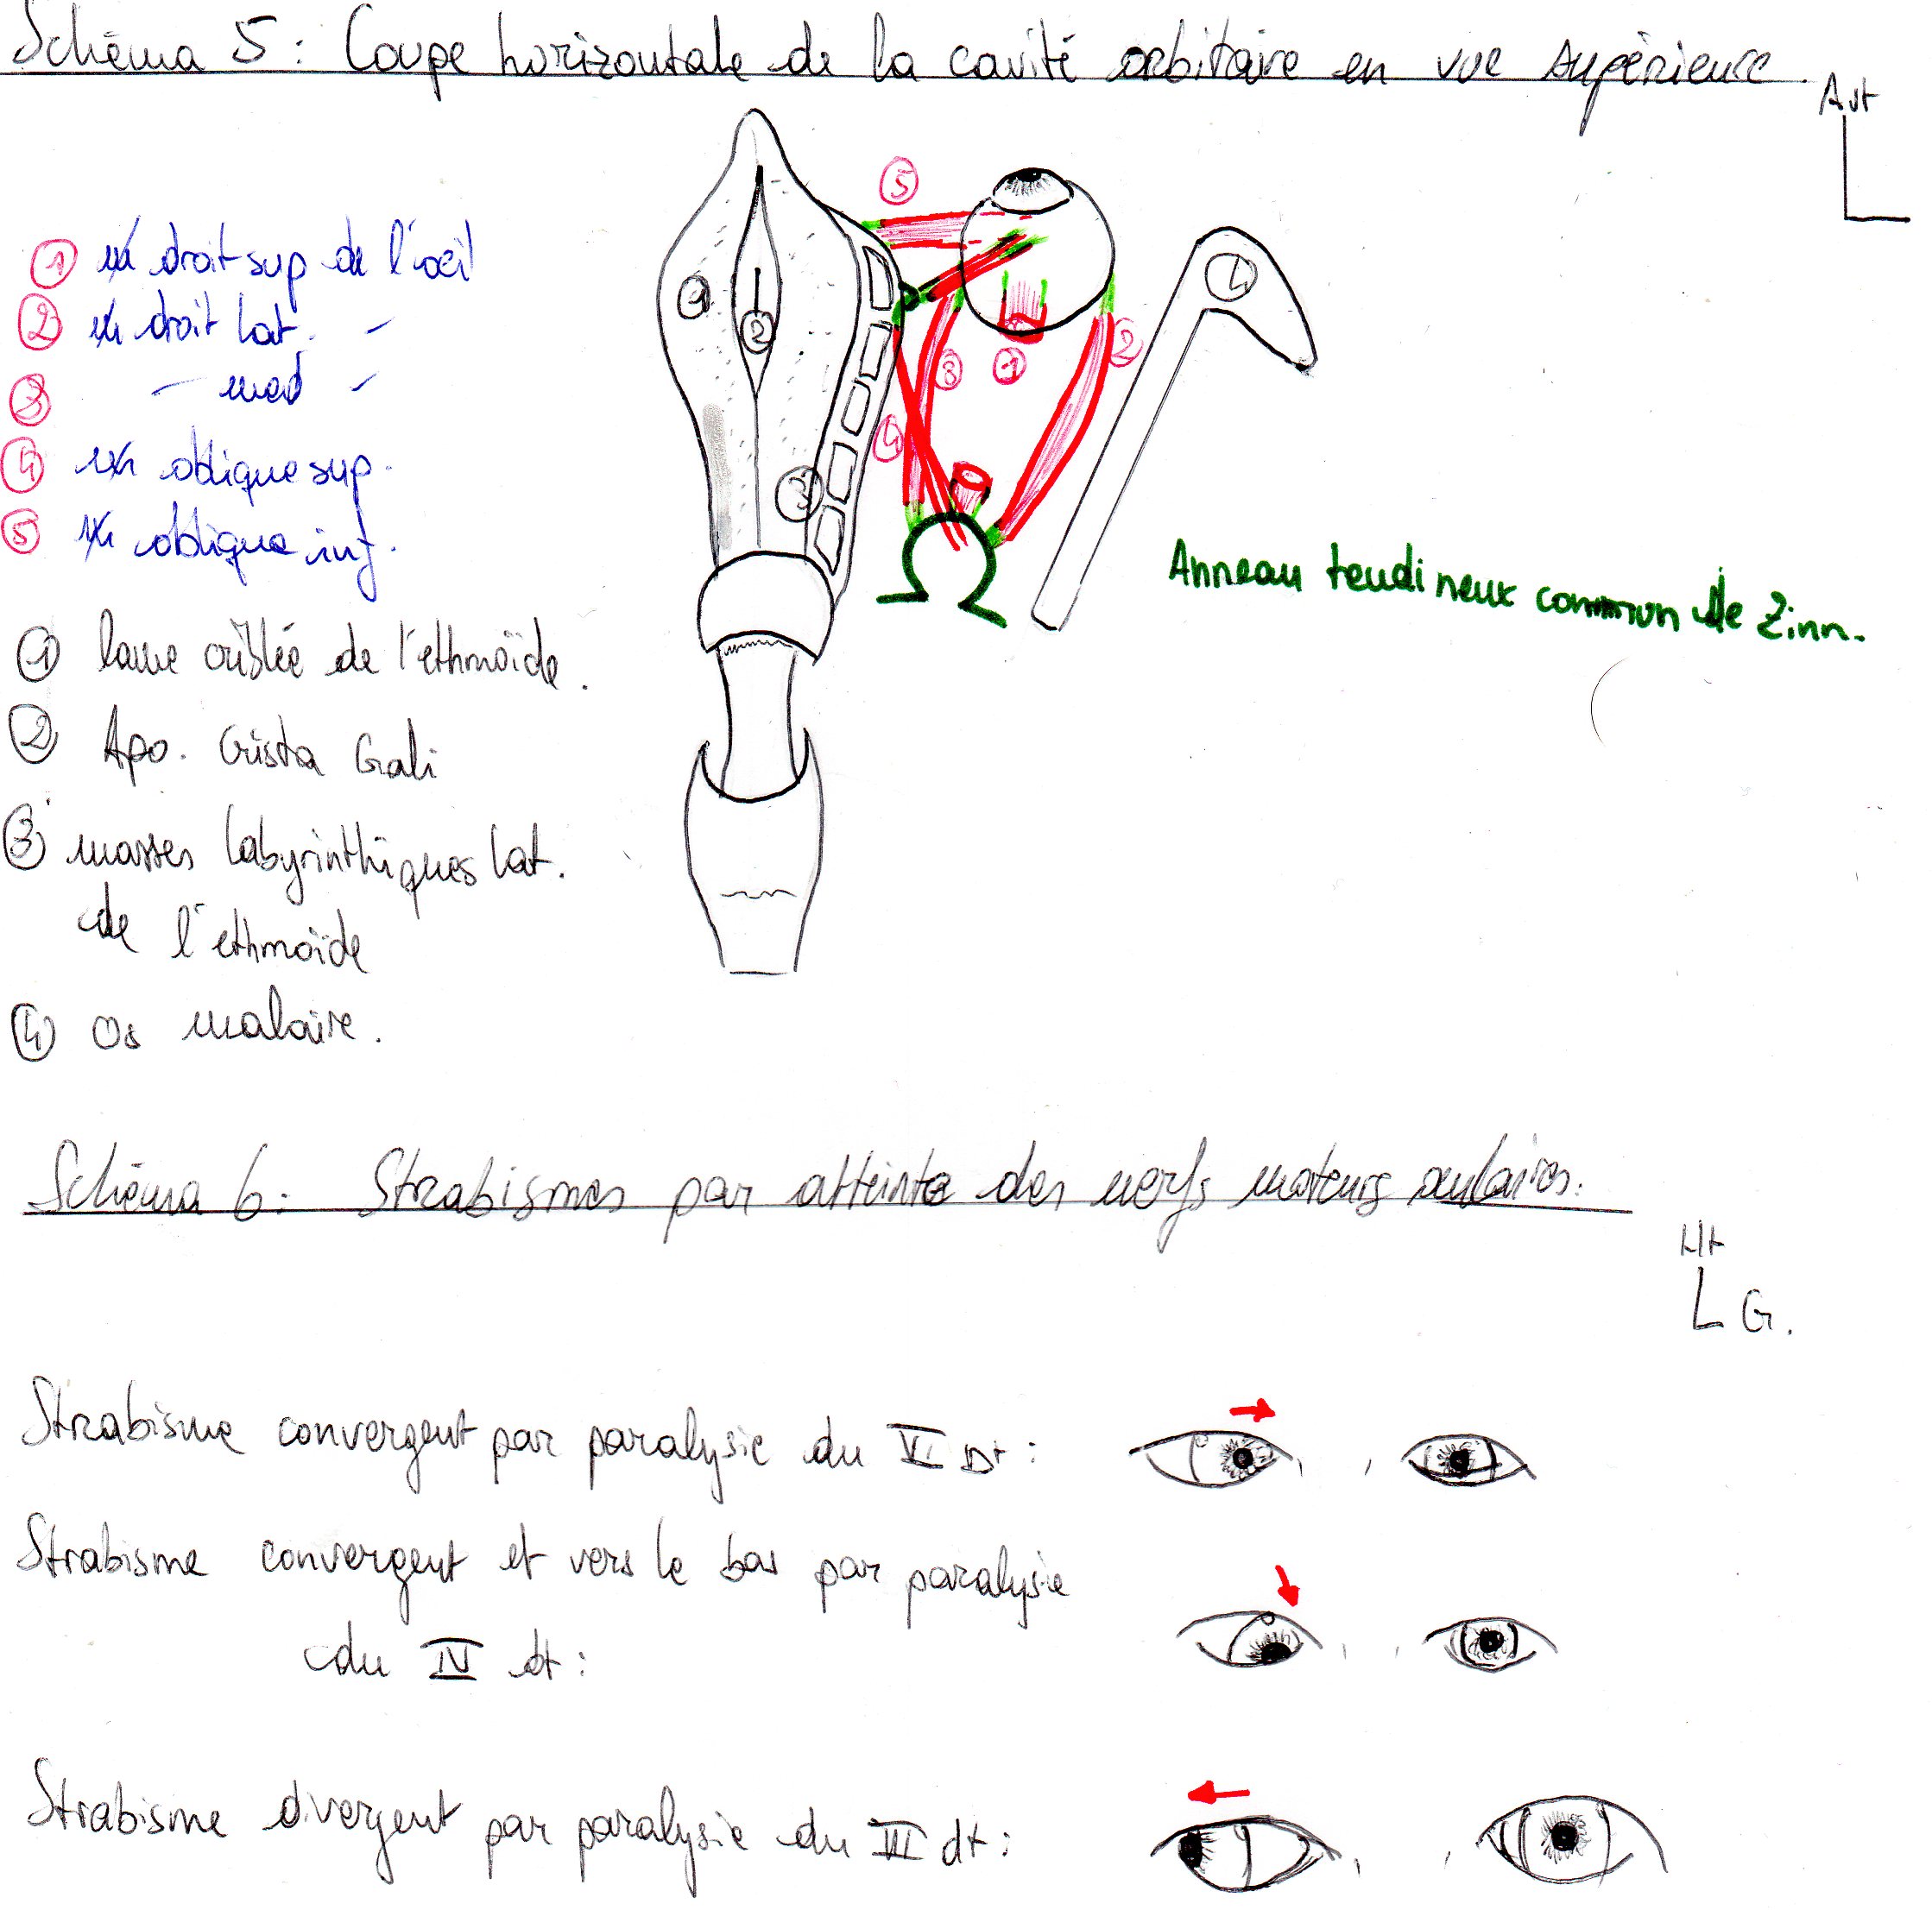 Schéma 5 : Coupe horizontale de la cavité orbitaire en vue supérieure.
Avt
① droit sup de l'oeil
② droit lat. -
③ - med -
④ oblique sup.
⑤ oblique inf.
⑤
①
②
③
④
①
②
③
④
⑤
Anneau tendineux commun de Zinn.
① lame criblée de l'ethmoïde.
② Apo. Crista Gali
③ masses labyrinthiques lat.
de l'ethmoïde
④ Os malaire.
Schéma 6 : Strabismes par atteinte des nerfs moteurs oculaires.
Ht
G.
Strabisme convergent par paralysie du VI Dt :
Strabisme convergent et vers le bas par paralysie
du IV dt :
Strabisme divergent par paralysie du III dt :